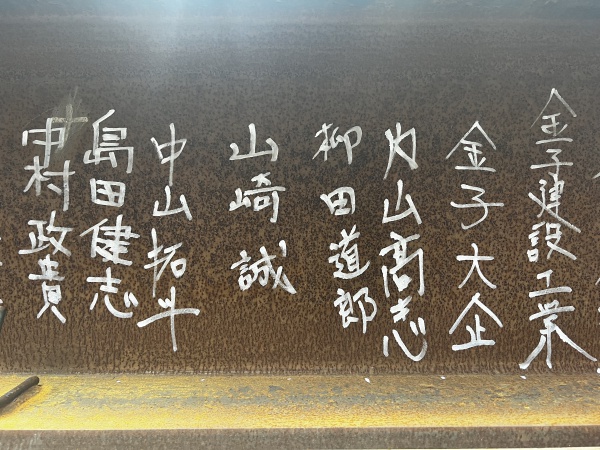 金子建設工業
金子大企
内山高志
柳田道郎
山崎誠
中山拓斗
島田健志
中村政貴